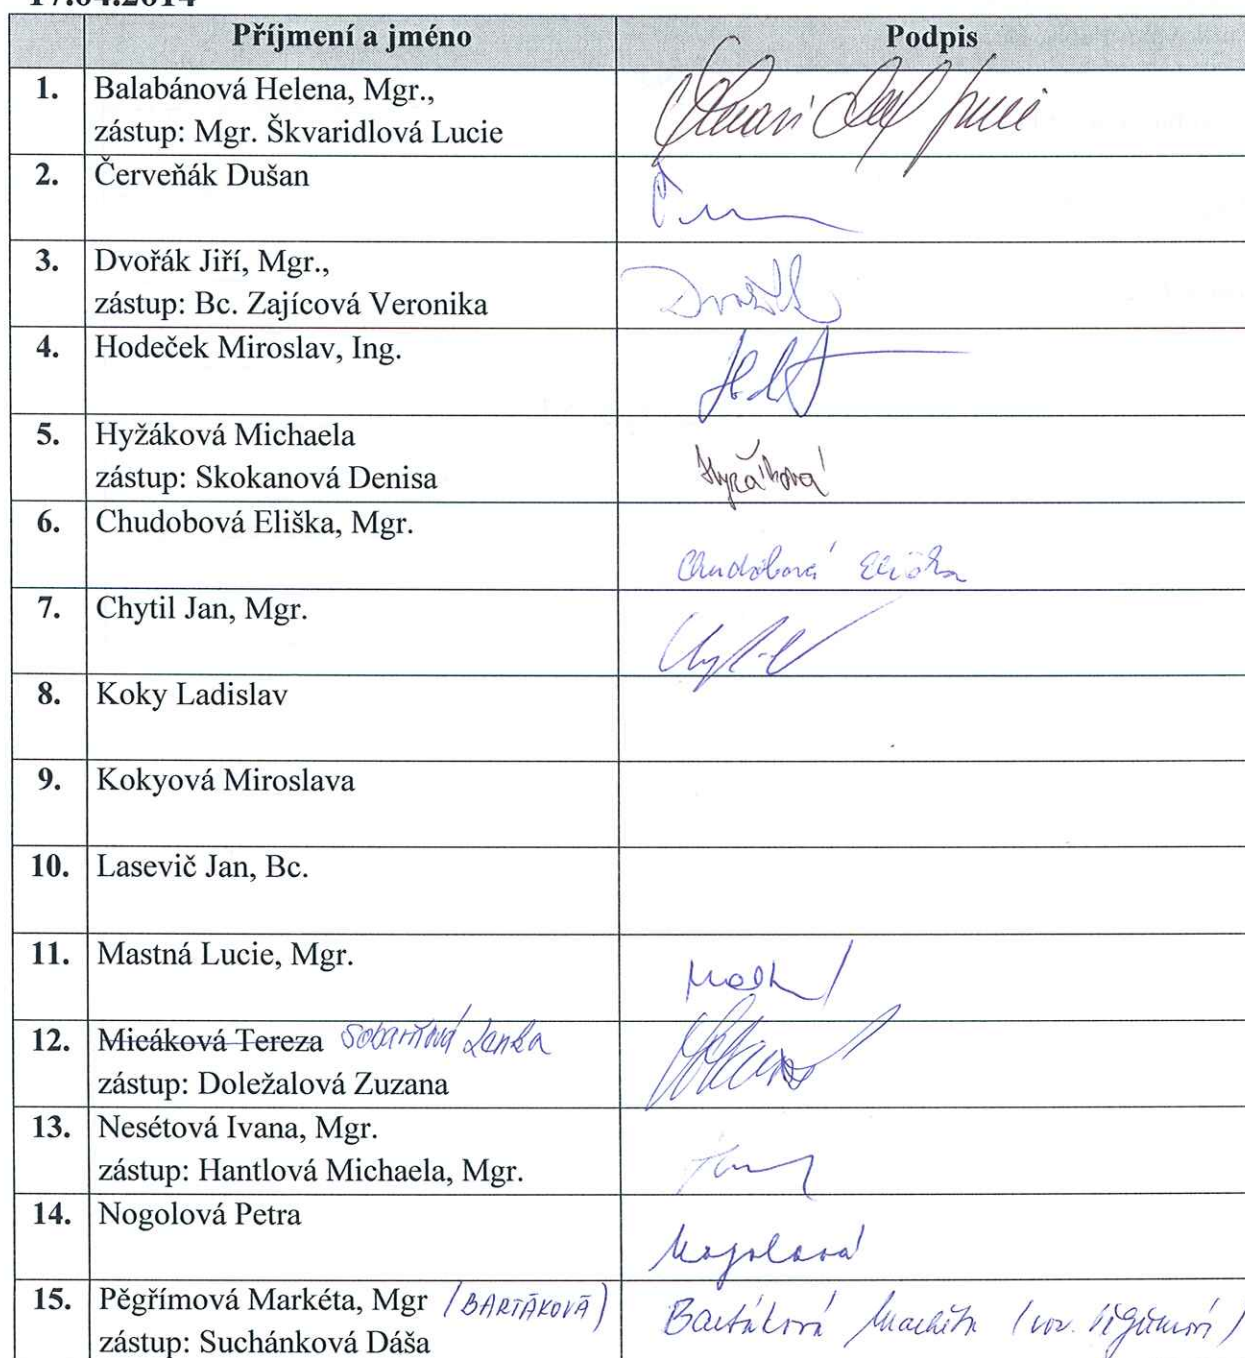 17.04.2014
Příjmení a jméno Podpis
1. Balabánová Helena, Mgr.,
zástup: Mgr. Škvaridlová Lucie
2. Červeňák Dušan
3. Dvořák Jiří, Mgr.,
zástup: Bc. Zajícová Veronika
4. Hodeček Miroslav, Ing.
5. Hyžáková Michaela
zástup: Skokanová Denisa Hyžáková
6. Chudobová Eliška, Mgr.
Chudobová Eliška
7. Chytil Jan, Mgr.
8. Koky Ladislav
9. Kokyová Miroslava
10. Lasevič Jan, Bc.
11. Mastná Lucie, Mgr.
12. Micáková Tereza Lenka
zástup: Doležalová Zuzana
13. Nesétová Ivana, Mgr.
zástup: Hantlová Michaela, Mgr.
14. Nogolová Petra
Nogolová
15. Pěgřímová Markéta, Mgr (BARTÁKOVÁ) Bartáková Markéta
zástup: Suchánková Dáša